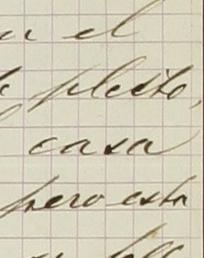 el
pleito,
casa
pero esta